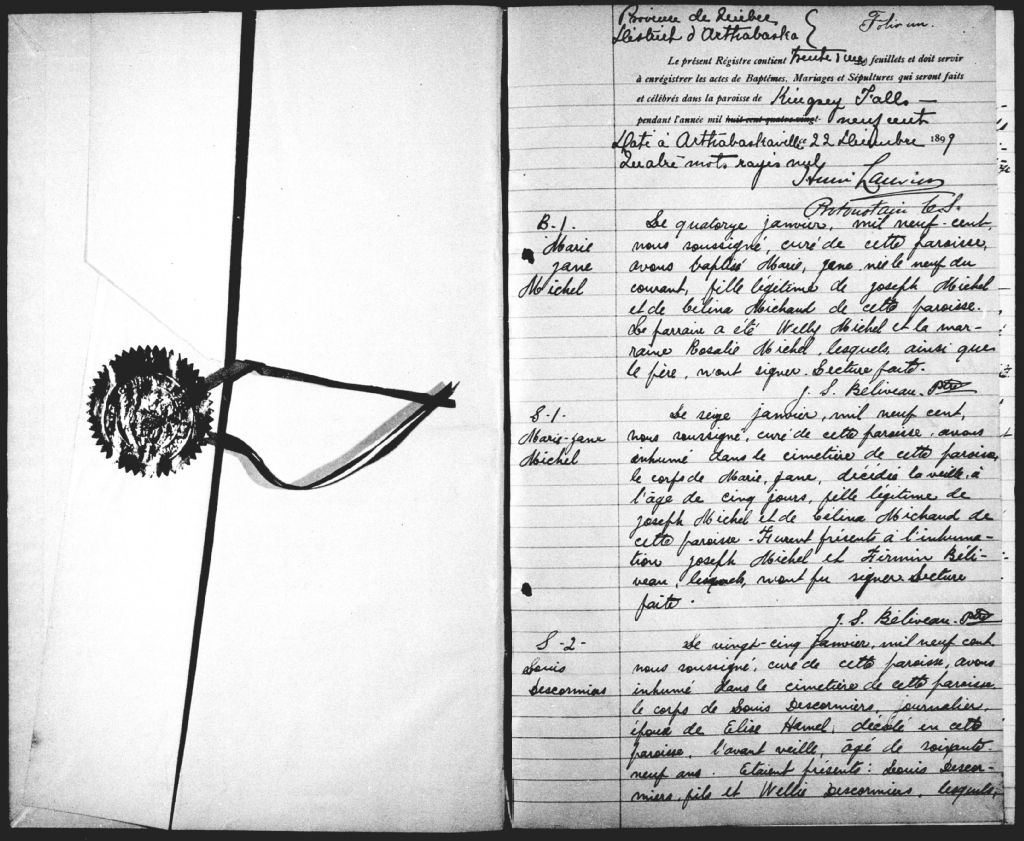 Province de Québec
District d'Arthabaska
Folio un.
Le présent Régistre contient trente deux feuillets et doit servir
à enrégistrer les actes de Baptêmes, Mariages et Sépultures qui seront faits
et célébrés dans la paroisse de Kingsey Falls
pendant l'année mil huit cent quatre-vingt- neuf cent
Daté à Arthabaskaville 22 Décembre 1899
Quatre mots rayés nul
Protonotaire C. S.
B-1-
Marie
Jane
Michel
Le quatorze janvier, mil neuf-cent,
nous soussigné, curé de cette paroisse,
avons baptisé Marie, Jane née le neuf du
courant, fille légitime de Joseph Michel
et de Célina Michaud de cette paroisse.
Le parrain a été Welly Michel et la mar-
raine Rosalie Michel, lesquels, ainsi que
le père, n'ont signer. Lecture faite.
J. S. Béliveau. Ptre
S-1-
Marie-Jane
Michel
Le seize janvier, mil neuf cent,
nous soussigné, curé de cette paroisse, avons
inhumé dans le cimetière de cette paroisse,
le corps de Marie, Jane, décédée la veille, à
l'âge de cinq jours, fille légitime de
Joseph Michel et de Célina Michaud de
cette paroisse - Furent présents à l'inhuma-
tion Joseph Michel et Firmin Béli-
veau, lesquels, n'ont pu signer Lecture
faite.
J. S. Béliveau. Ptre
S-2-
Louis
Descormiers
Le vingt-cinq janvier, mil neuf cent
nous soussigné, curé de cette paroisse, avons
inhumé dans le cimetière de cette paroisse
le corps de Louis Descormiers, journalier,
époux de Elise Hamel, décédé en cette
paroisse, l'avant veille, âgé de soixante-
neuf ans. Etaient présents: Louis Descor-
miers, fils et Wellie Descormiers, lesquels,